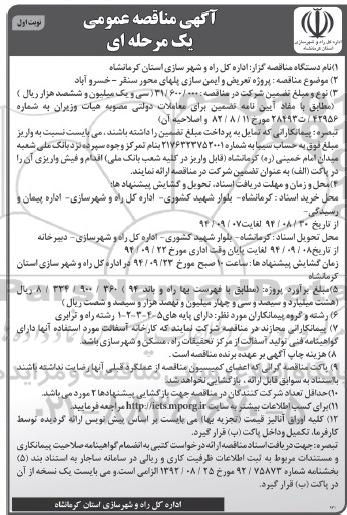 آگهی مناقصه عمومی
یک مرحله ای
نوبت اول
اداره کل راه و شهرسازی استان کرمانشاه
۱)نام دستگاه مناقصه گزار: اداره کل راه و شهر سازی استان کرمانشاه
۲) موضوع مناقصه : پروژه تعریض و ایمن سازی پلهای محور سنقر - خسرو آباد
۳) نوع و مبلغ تضمین شرکت در مناقصه : ۳۱/۶۰۰/۰۰۰ ( سی و یک میلیون و ششصد هزار ریال )
(مطابق با مفاد آیین نامه تضمین برای معاملات دولتی مصوبه هیات وزیران به شماره
۴۲۹۵۶ / ت ۲۸۴۹۳ مورخ ۱۱ / ۸ / ۸۲ و اصلاحیه آن)
تبصره: پیمانکارانی که تمایل به پرداخت مبلغ تضمین را داشته باشند، می بایست نسبت به واریز
مبلغ فوق به حساب سیبا به شماره ۲۱۷۶۴۳۲۳۷۵۲۰۰۱ بنام تمرکز وجوه سپرده نزد بانک ملی شعبه
میدان امام خمینی (ره) کرمانشاه (قابل واریز در کلیه شعب بانک ملی) اقدام و فیش واریزی آن را
در پاکت (الف) به عنوان تضمین شرکت در مناقصه ارائه نمایند.
۴)محل و زمان و مهلت دریافت اسناد، تحویل و گشایش پیشنهاد ها:
محل خرید اسناد : کرمانشاه- بلوار شهید کشوری- اداره کل راه و شهرسازی- اداره پیمان و
رسیدگی-
از تاریخ ۳۰ / ۰۸ / ۹۴ لغایت ۰۷ / ۰۹ / ۹۴
محل تحویل اسناد : کرمانشاه- بلوار شهید کشوری- اداره کل راه و شهرسازی- دبیرخانه
از تاریخ ۰۸ / ۰۹ / ۹۴ لغایت پایان وقت اداری مورخ ۲۲ / ۰۹ / ۹۴
زمان گشایش پیشنهاد ها : ساعت ۱۰ صبح مورخ ۲۳ / ۰۹ / ۹۴ در اداره کل راه و شهر سازی استان
کرمانشاه
۵)مبلغ برآورد پروژه: (مطابق با فهرست بها راه و باند ۹۴ ) ۳۶۰ / ۹۰۰ / ۳۳۴ / ۸ ریال
(هشت میلیارد و سیصد و سی و چهار میلیون و نهصد هزار و سیصد و شصت ریال )
۶) رشته و گروه پیمانکاران مورد نظر: دارای پایه های ۵-۴-۳-۲-۱ رشته راه و ترابری
۷) پیمانکارانی مجازند در مناقصه شرکت نمایند که کارخانه آسفالت مورد استفاده آنها دارای
گواهینامه فنی تولید آسفالت از مرکز تحقیقات راه ، مسکن و شهرسازی باشد
۸) هزینه چاپ آگهی بر عهده برنده مناقصه است.
۹) پاکت مناقصه گرانی که اعضای کمیسیون مناقصه از عملکرد قبلی آنها رضایت نداشته باشند
با استناد به سوابق قابل ارائه ، بازگشایی نخواهد شد
۱۰)حداقل تعداد شرکت کنندگان در مناقصه جهت بازگشایی پیشنهادها ۲ مورد می باشد.
۱۱)برای کسب اطلاعات بیشتر به سایت http://iets.mporg.ir مراجعه فرمایید.
۱۲) کلیه اوراق آنالیز قیمت (تجزیه بها) می بایست بر اساس پیش نویس ارائه گردیده توسط
کارفرما، تکمیل وداخل پاکت (ب) قرار گیرد.
تبصره: جهت دریافت اسناد مناقصه ارائه درخواست کتبی به انضمام گواهینامه صلاحیت پیمانکاری
و مستندات مربوط به ثبت اطلاعات ظرفیت کاری و ریالی در سامانه ساجار به استناد بند (۵)
بخشنامه شماره ۷۵۸۷۳ / ۹۲ مورخ ۲۵ / ۰۸ / ۱۳۹۲ الزامی است و می بایست یک نسخه از آن
در پاکت (ب) قرار گیرد.
اداره کل راه و شهرسازی استان کرمانشاه